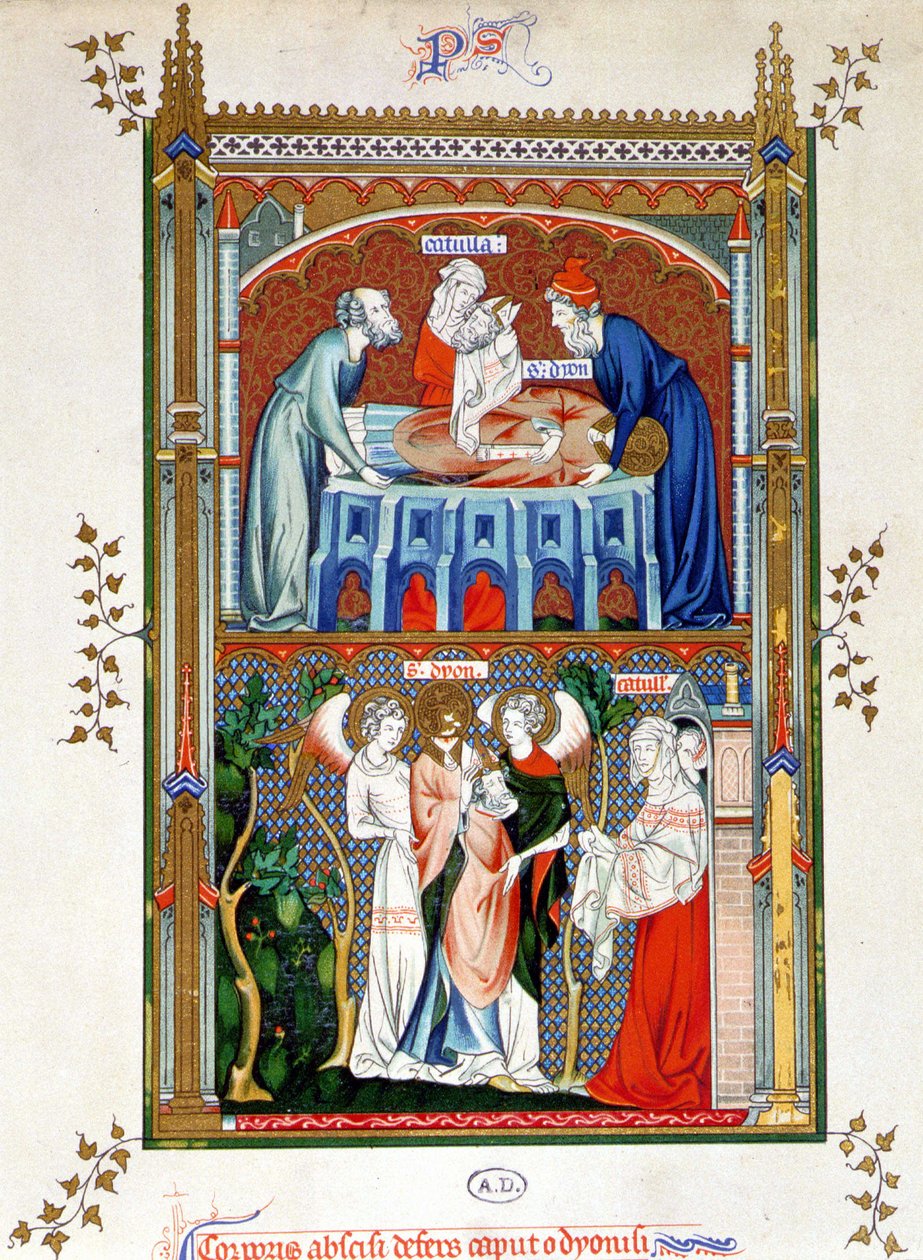 PS
catulla:
s': dyon
s'. dyon.
catull'.
A.D.
Corporis abscisi defers caput o dyonisi